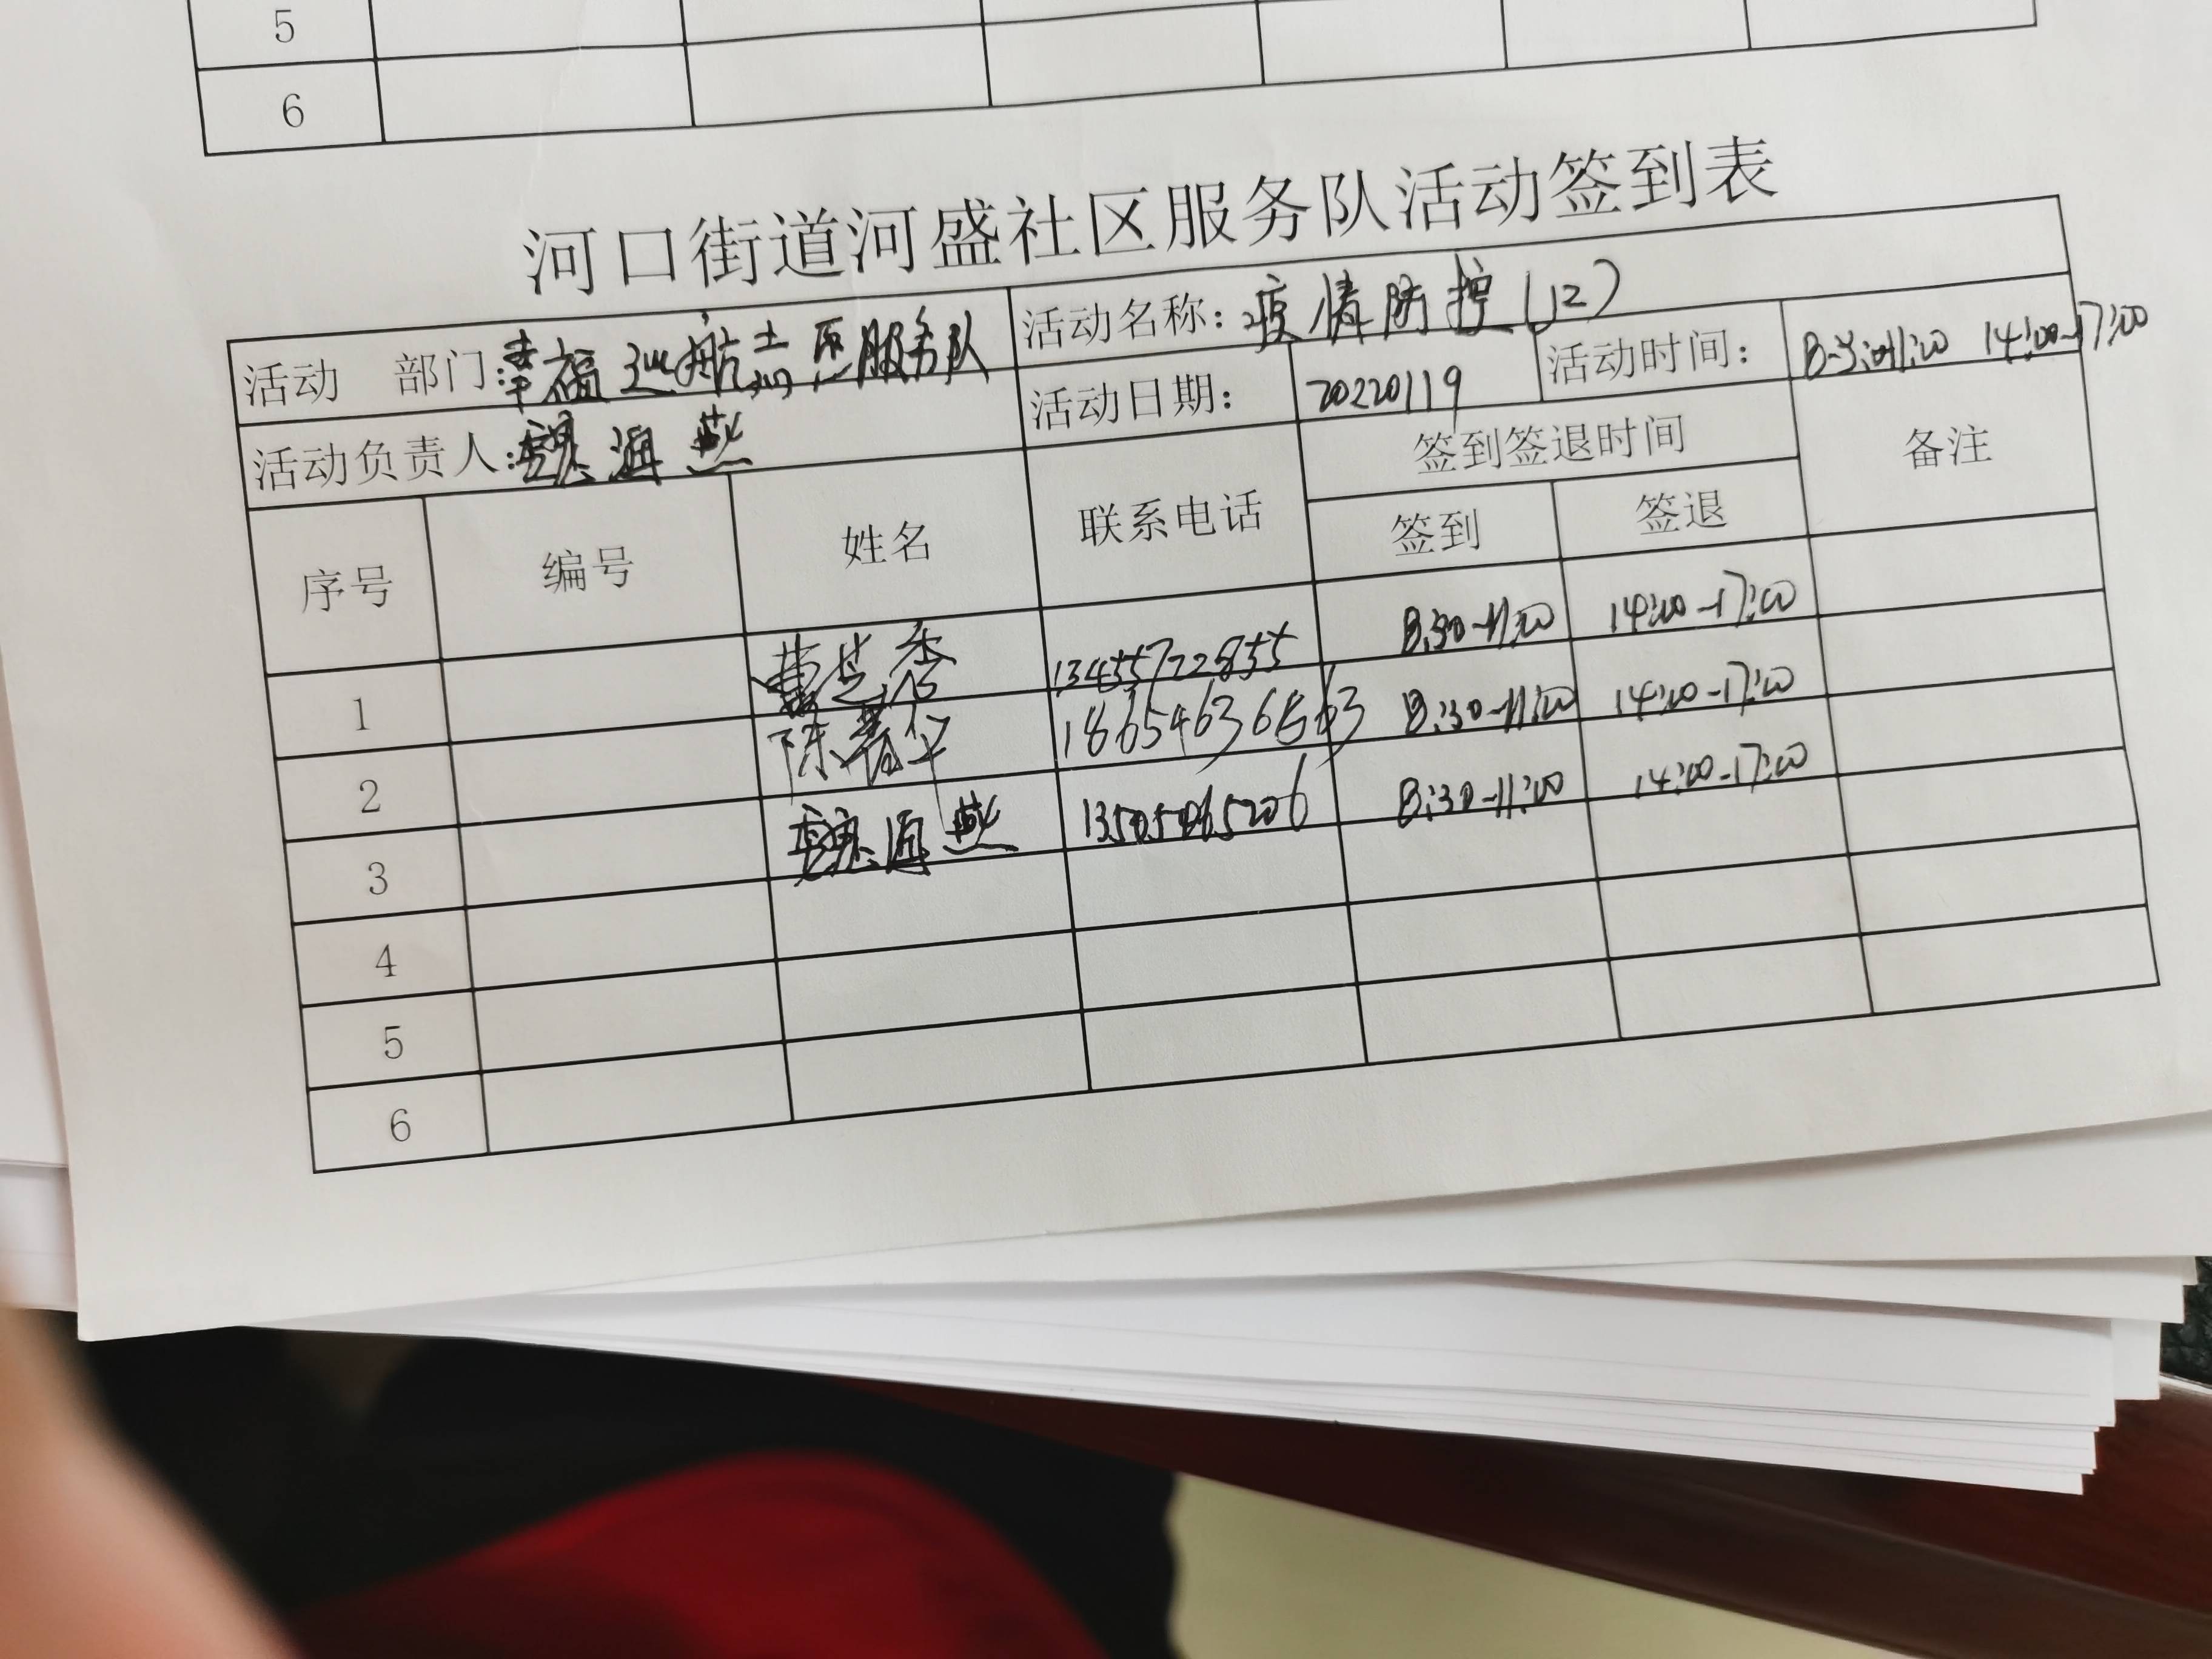 5
6
河口街道河盛社区服务队活动签到表
活动 部门:幸福巡航志愿服务队 活动名称:疫情防控(12)
活动负责人:魏海燕 活动日期: 20220119 活动时间: 14:00-17:00
序号 编号 姓名 联系电话 签到签退时间 备注
签到 签退
1 曹芝香 13455722855 8:30-11:00 14:00-17:00
2 18654636563 8:30-11:00 14:00-17:00
3 魏海燕 13505465206 8:30-11:00 14:00-17:00
4
5
6